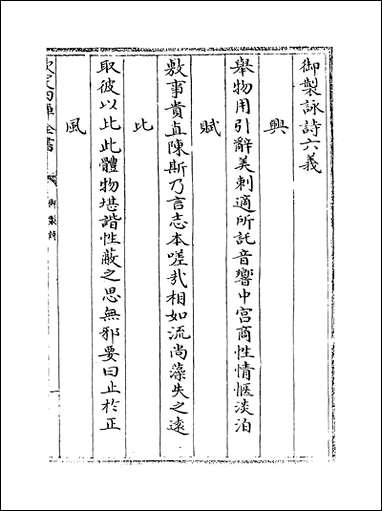 御製詠詩六義
興
舉物用引辭美刺適所託音響中宫商性情愜淡泊
賦
敷事貴直陳斯乃言志本嗟哉相如流尚藻失之遠
比
取彼以比此體物堪諧性蔽之思無邪要曰止於正
風
欽定四庫全書
御製詩